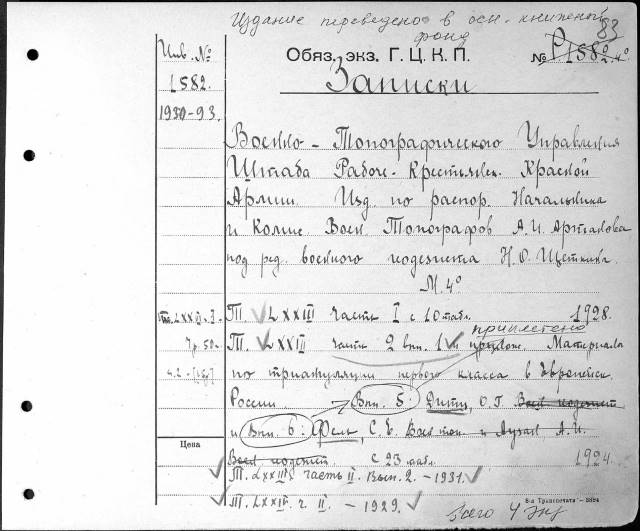 Издание переведено в осн. книжный
фонд 83
Инв. № Обяз. экз. Г.Ц.К.П. № 1582 4°
1582. Записки
1930-93.
Военно-Топографического Управления
Штаба Рабоче-Крестьянск. Красной
Армии. Изд. по распор. Начальника
и Комис. Воен. Топографов А.И. Артанова
под ред. военного геодезиста Н.О. Щеткина.
М. 4°
Т. LXXIII часть I с 10 табл. 1928.
приплетено
Т. LXXIII часть 2 вып. 1 Материалы
по триангуляции первого класса в Европейск.
России. Вып. 5: Дитц, О.Г. Воен. геодезист
и Вып. 6: Фель, С.Е. Воен. топ. и Аузан А.И.
Цена
Воен. геодезист с 23 табл. 1924.
Т. LXXIII часть II. Вып. 2. – 1931.
Т. LXXIX. ч II. – 1929.
Всего 4 экз